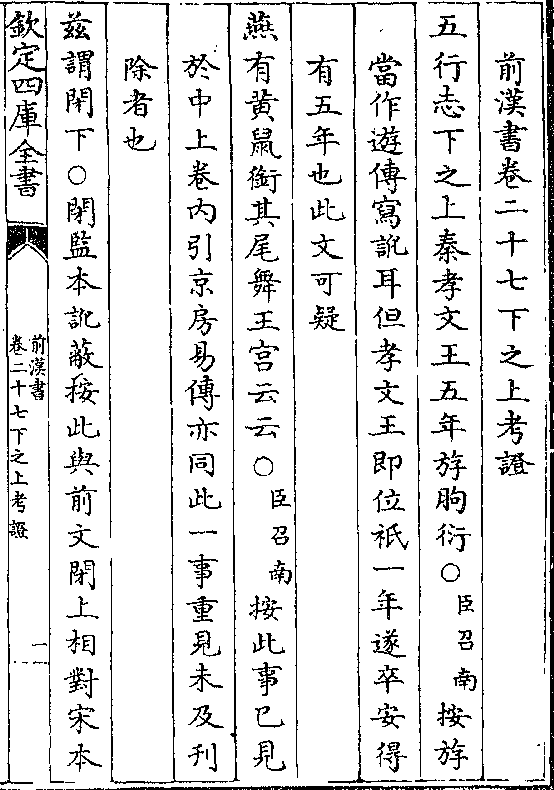 前漢書卷二十七下之上考證
五行志下之上秦孝文王五年斿朐衍○臣召南按斿
當作遊傳寫訛耳但孝文王即位祇一年遂卒安得
有五年也此文可疑
燕有黄鼠銜其尾舞王宫云云○臣召南按此事已見
於中上卷内引京房易傳亦同此一事重見未及刊
除者也
兹謂閉下○閉監本訛蔽按此與前文閉上相對宋本
欽定四庫全書
前漢書
卷二十七下之上考證
一